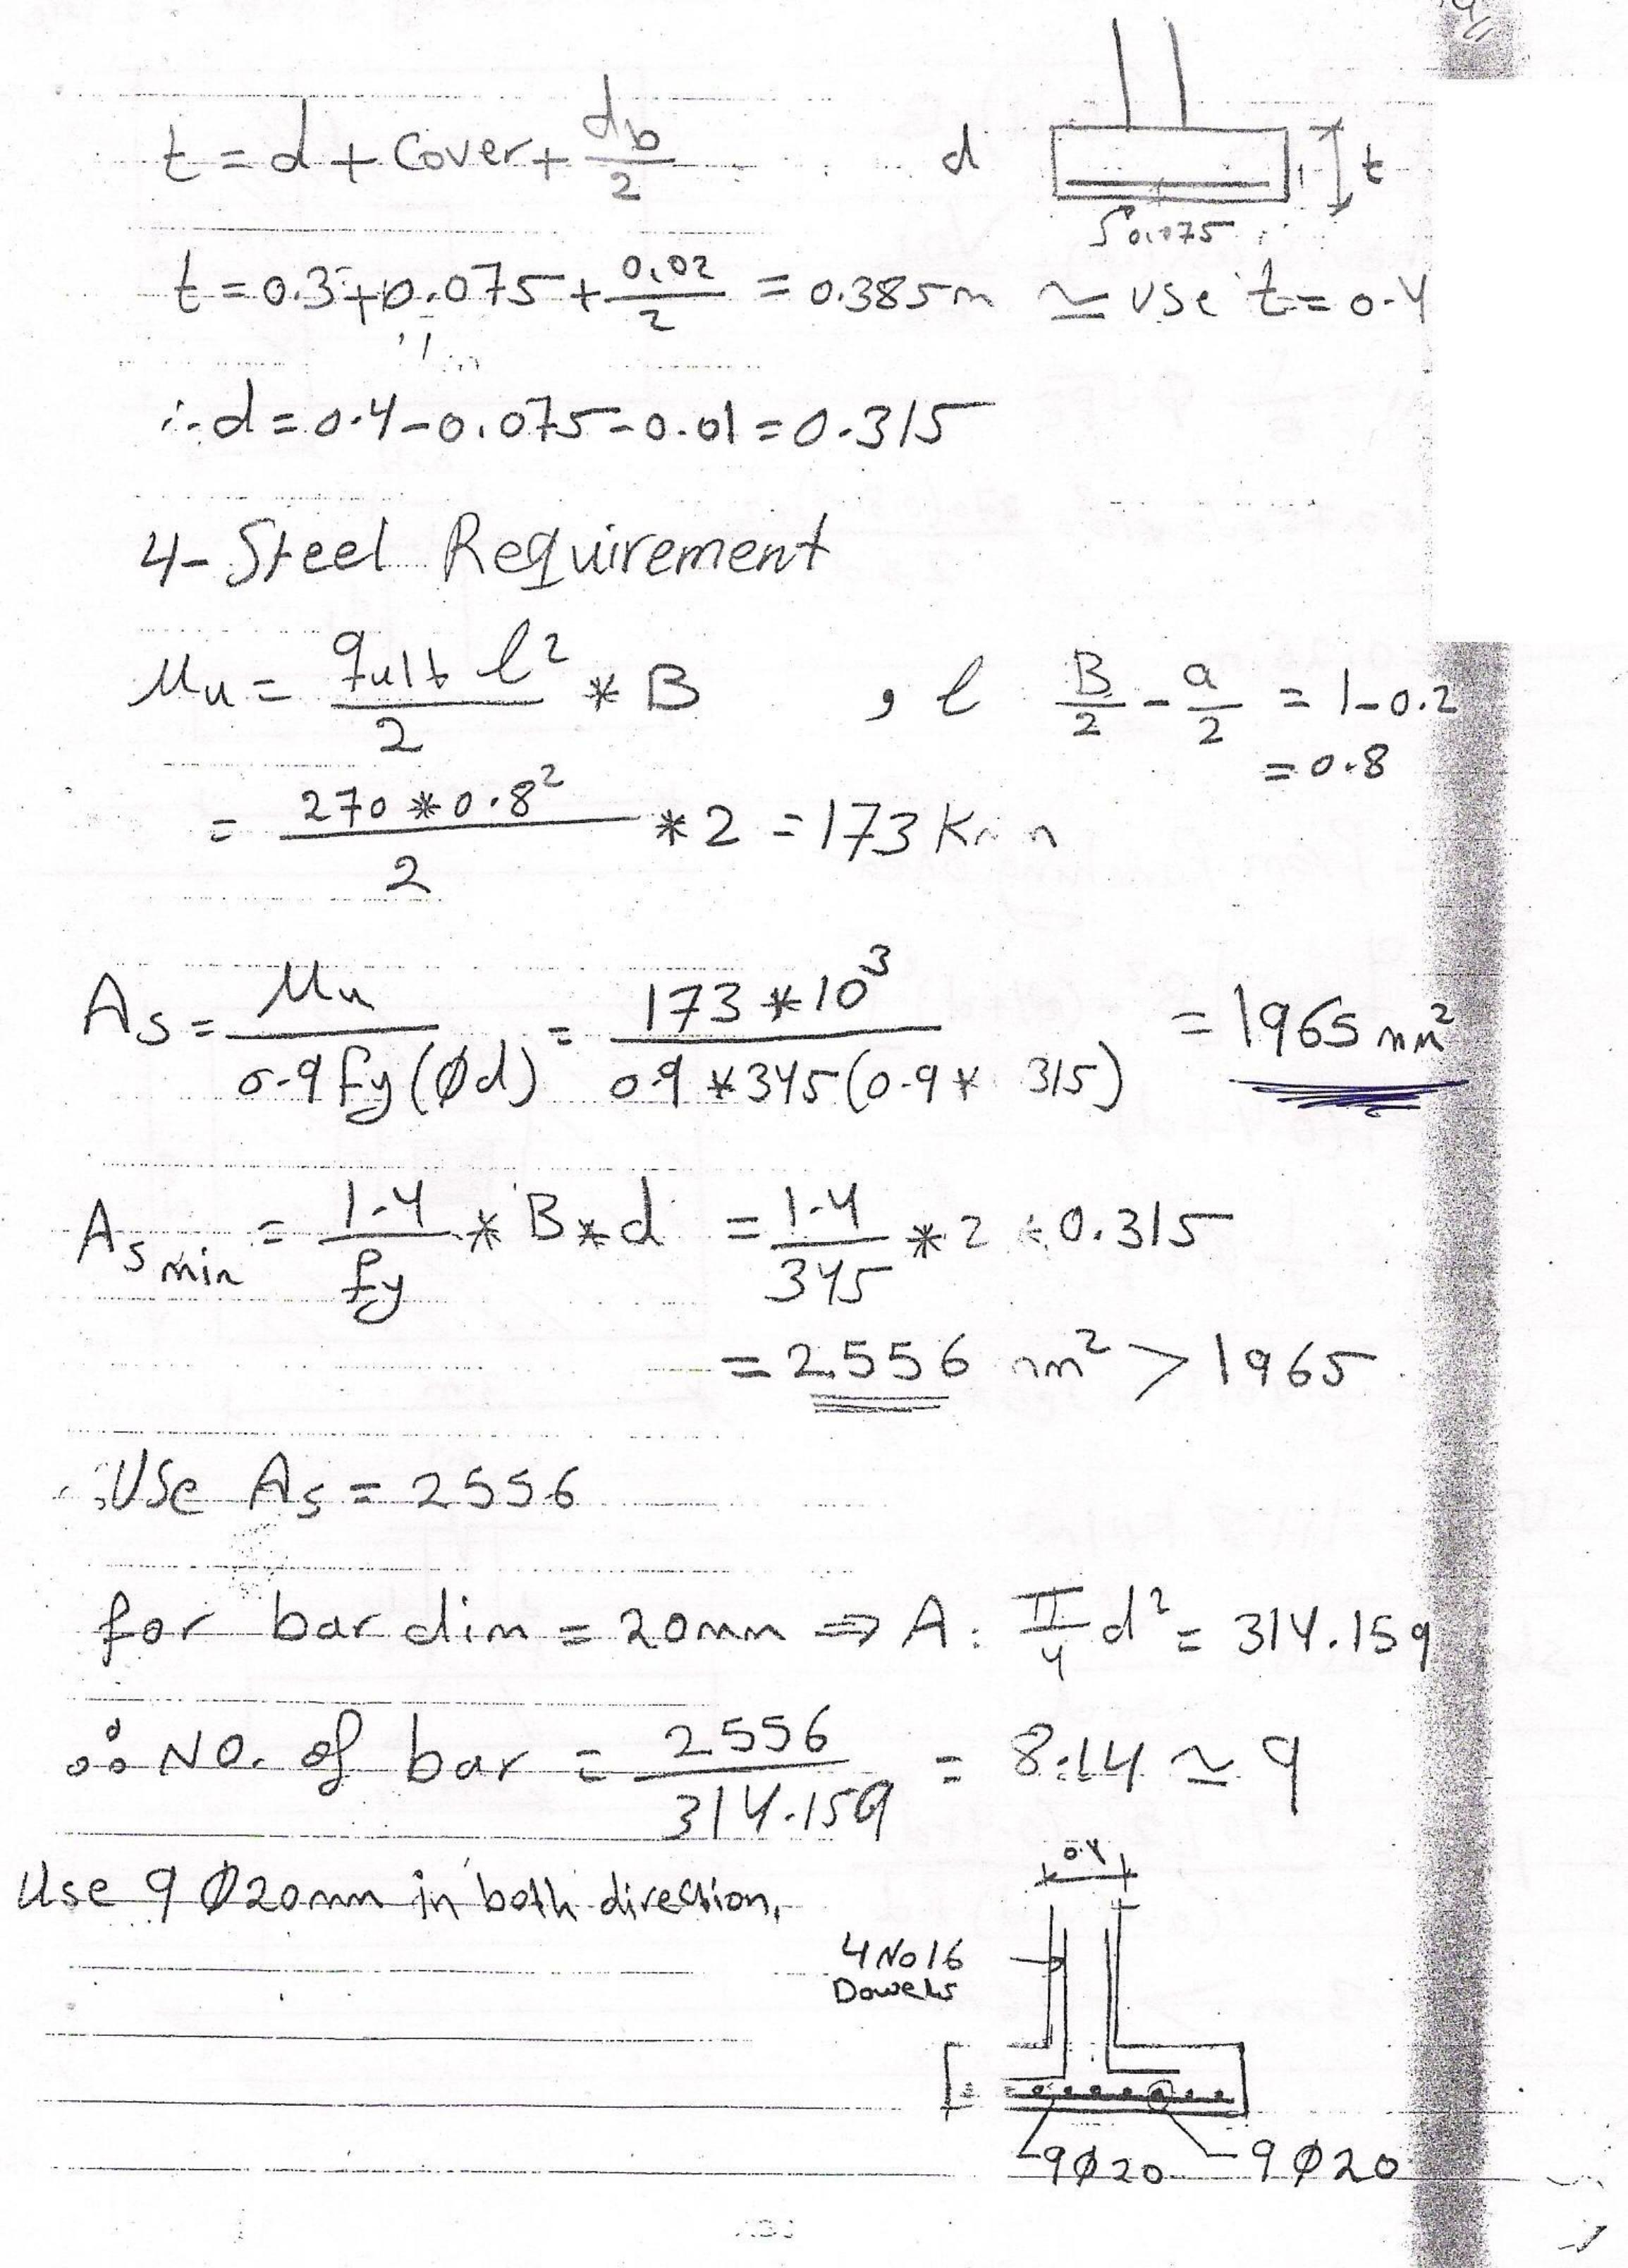 t = d + Cover + db/2
d
t
0.075
t = 0.3 + 0.075 + 0.02/2 = 0.385m ≃ use t = 0.4
∴ d = 0.4 - 0.075 - 0.01 = 0.315
4- Steel Requirement
Mu = qult l²/2 * B , l B/2 - a/2 = 1 - 0.2
= 0.8
= 270 * 0.8²/2 * 2 = 173 K
As = Mu/0.9 fy (Ød) = 173 * 10³/0.9 * 345 (0.9 * 315) = 1965 mm²
As min = 1.4/fy * B * d = 1.4/345 * 2 * 0.315
= 2556 mm² > 1965
∴ Use As = 2556
for bar dim = 20mm ⇒ A: π/4 d² = 314.159
∴ No. of bar = 2556/314.159 = 8.14 ≃ 9
Use 9 Ø20mm in both direction.
0.4
4 No 16
Dowels
9Ø20 9Ø20